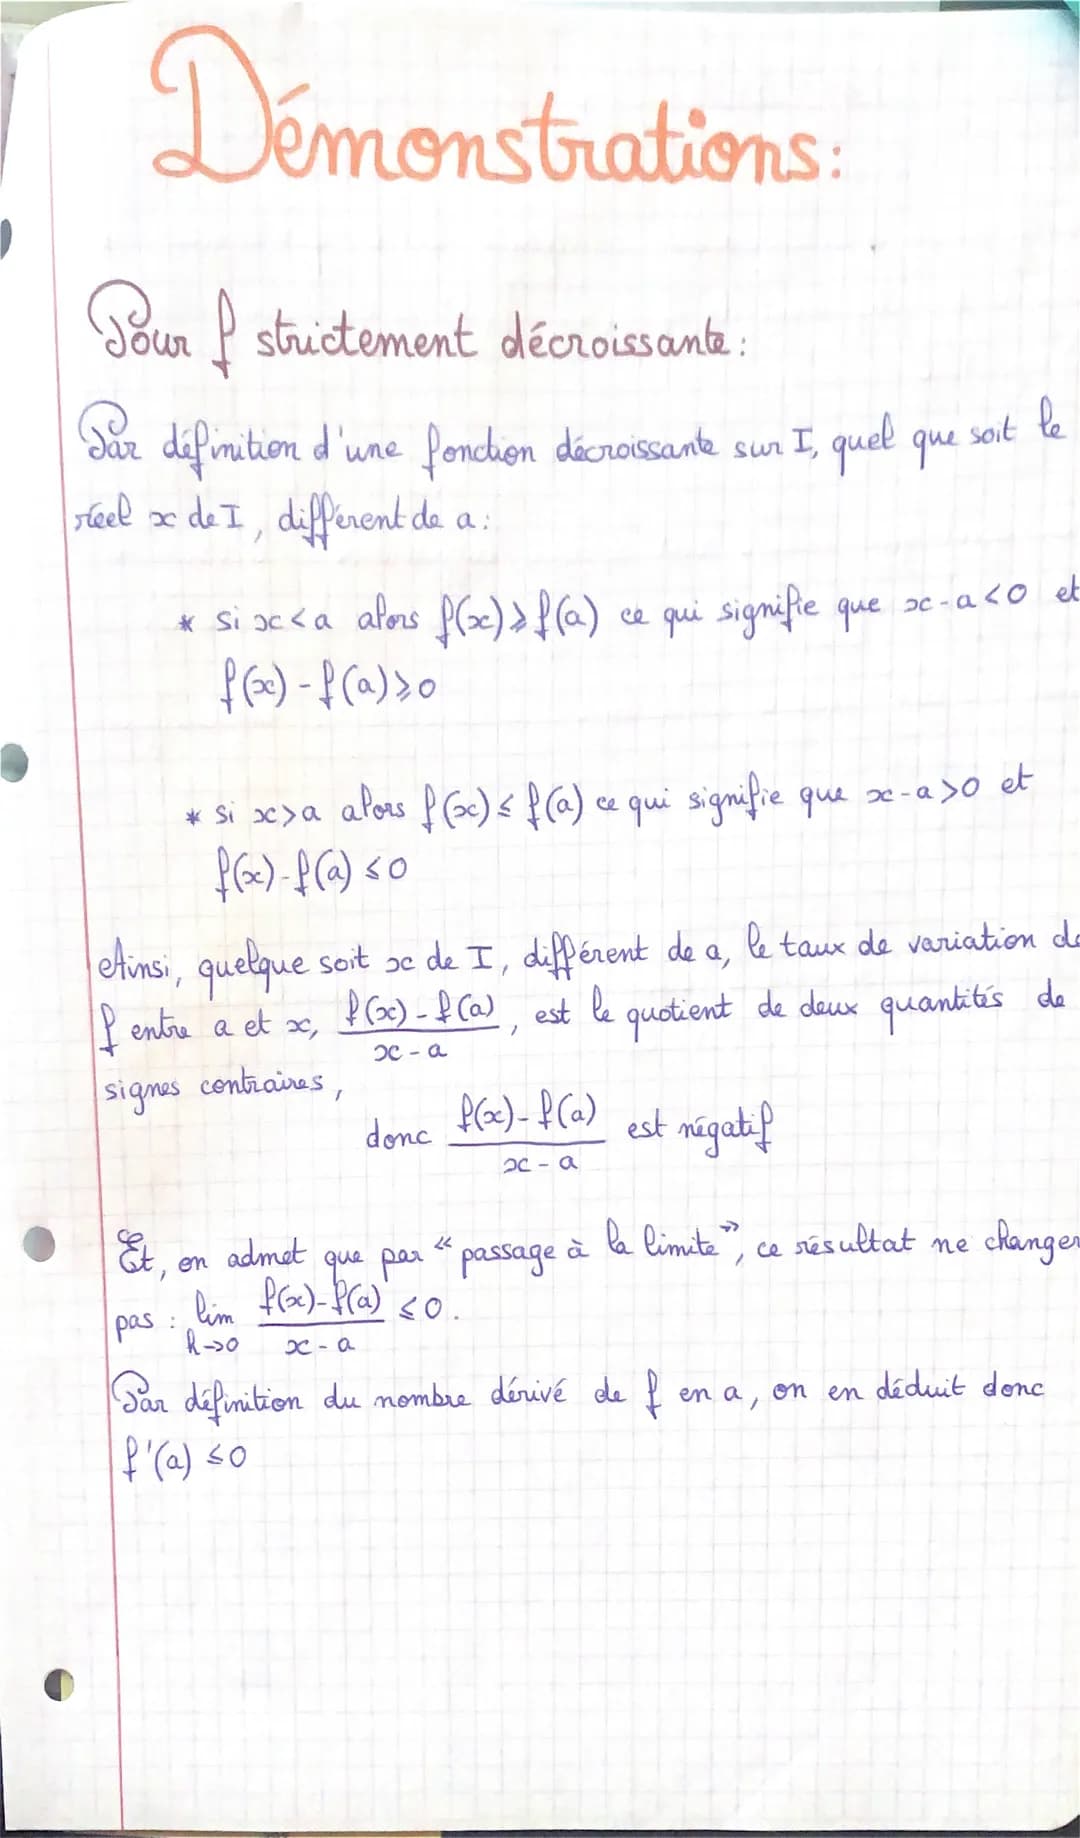 Démonstrations:
Pour f strictement décroissante:
Par définition d'une fonction décroissante sur I, quel que soit le
réel x de I, différent de a:
* si x<a alors f(x)≥f(a) ce qui signifie que x-a<0 et
f(x)-f(a)≥0
* si x>a alors f(x)≤f(a) ce qui signifie que x-a>0 et
f(x)-f(a)≤0
Ainsi, quelque soit x de I, différent de a, le taux de variation de
f entre a et x, (f(x)-f(a))/(x-a), est le quotient de deux quantités de
signes contraires,
donc (f(x)-f(a))/(x-a) est négatif
Et, on admet que par "passage à la limite", ce résultat ne changer
pas : lim h→0 (f(x)-f(a))/(x-a) ≤0.
Par définition du nombre dérivé de f en a, on en déduit donc
f'(a) ≤0